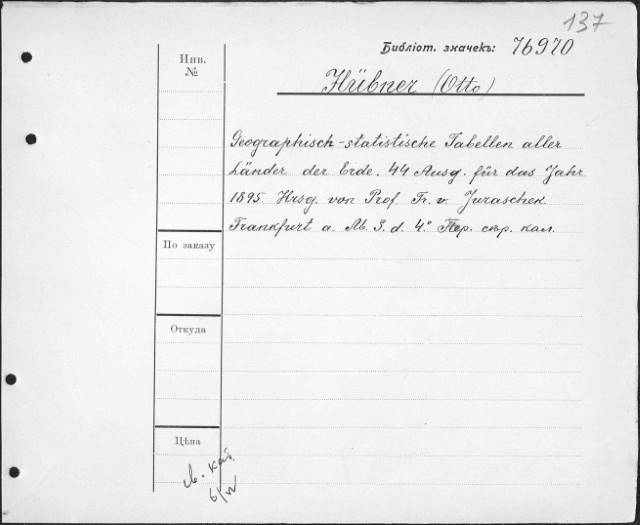 137
Библіот. значекъ: 76970
Инв.
№
Hübner (Otto)
Geographisch-statistische Tabellen aller
Länder der Erde. 44 Ausg. für das Jahr
1895. Hrsg. von Prof. Fr. v. Juraschek
Frankfurt a. M. S. d. 4° Пер. сѣр. кал.
По заказу
Откуда
Цѣна
св. кат.